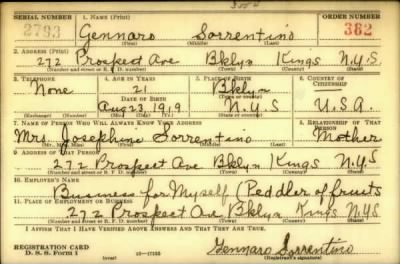 SERIAL NUMBER 1. NAME (Print) ORDER NUMBER
2793 Gennaro Sorrentino 362
(First) (Middle) (Last)
2. ADDRESS (Print)
272 Prospect Ave Bklyn Kings N.Y.S
(Number and street or R. F. D. number) (Town) (County) (State)
3. TELEPHONE 4. AGE IN YEARS 5. PLACE OF BIRTH 6. COUNTRY OF CITIZENSHIP
None 21 Bklyn
DATE OF BIRTH
Aug 23 1919 N.Y.S U.S.A.
7. NAME OF PERSON WHO WILL ALWAYS KNOW YOUR ADDRESS 8. RELATIONSHIP OF THAT PERSON
Mrs. Josephine Sorrentino Mother
(Mr., Mrs., Miss) (First) (Middle) (Last)
9. ADDRESS OF THAT PERSON
272 Prospect Ave Bklyn Kings N.Y.S
(Number and street or R. F. D. number) (Town) (County) (State)
10. EMPLOYER'S NAME
Business for Myself (Peddler of fruits
11. PLACE OF EMPLOYMENT OR BUSINESS
272 Prospect Ave Bklyn Kings NYS
(Number and street or R. F. D. number) (Town) (County) (State)
I AFFIRM THAT I HAVE VERIFIED ABOVE ANSWERS AND THAT THEY ARE TRUE.
REGISTRATION CARD
D. S. S. Form 1 Gennaro Sorrentino
(over) (Registrant's signature)